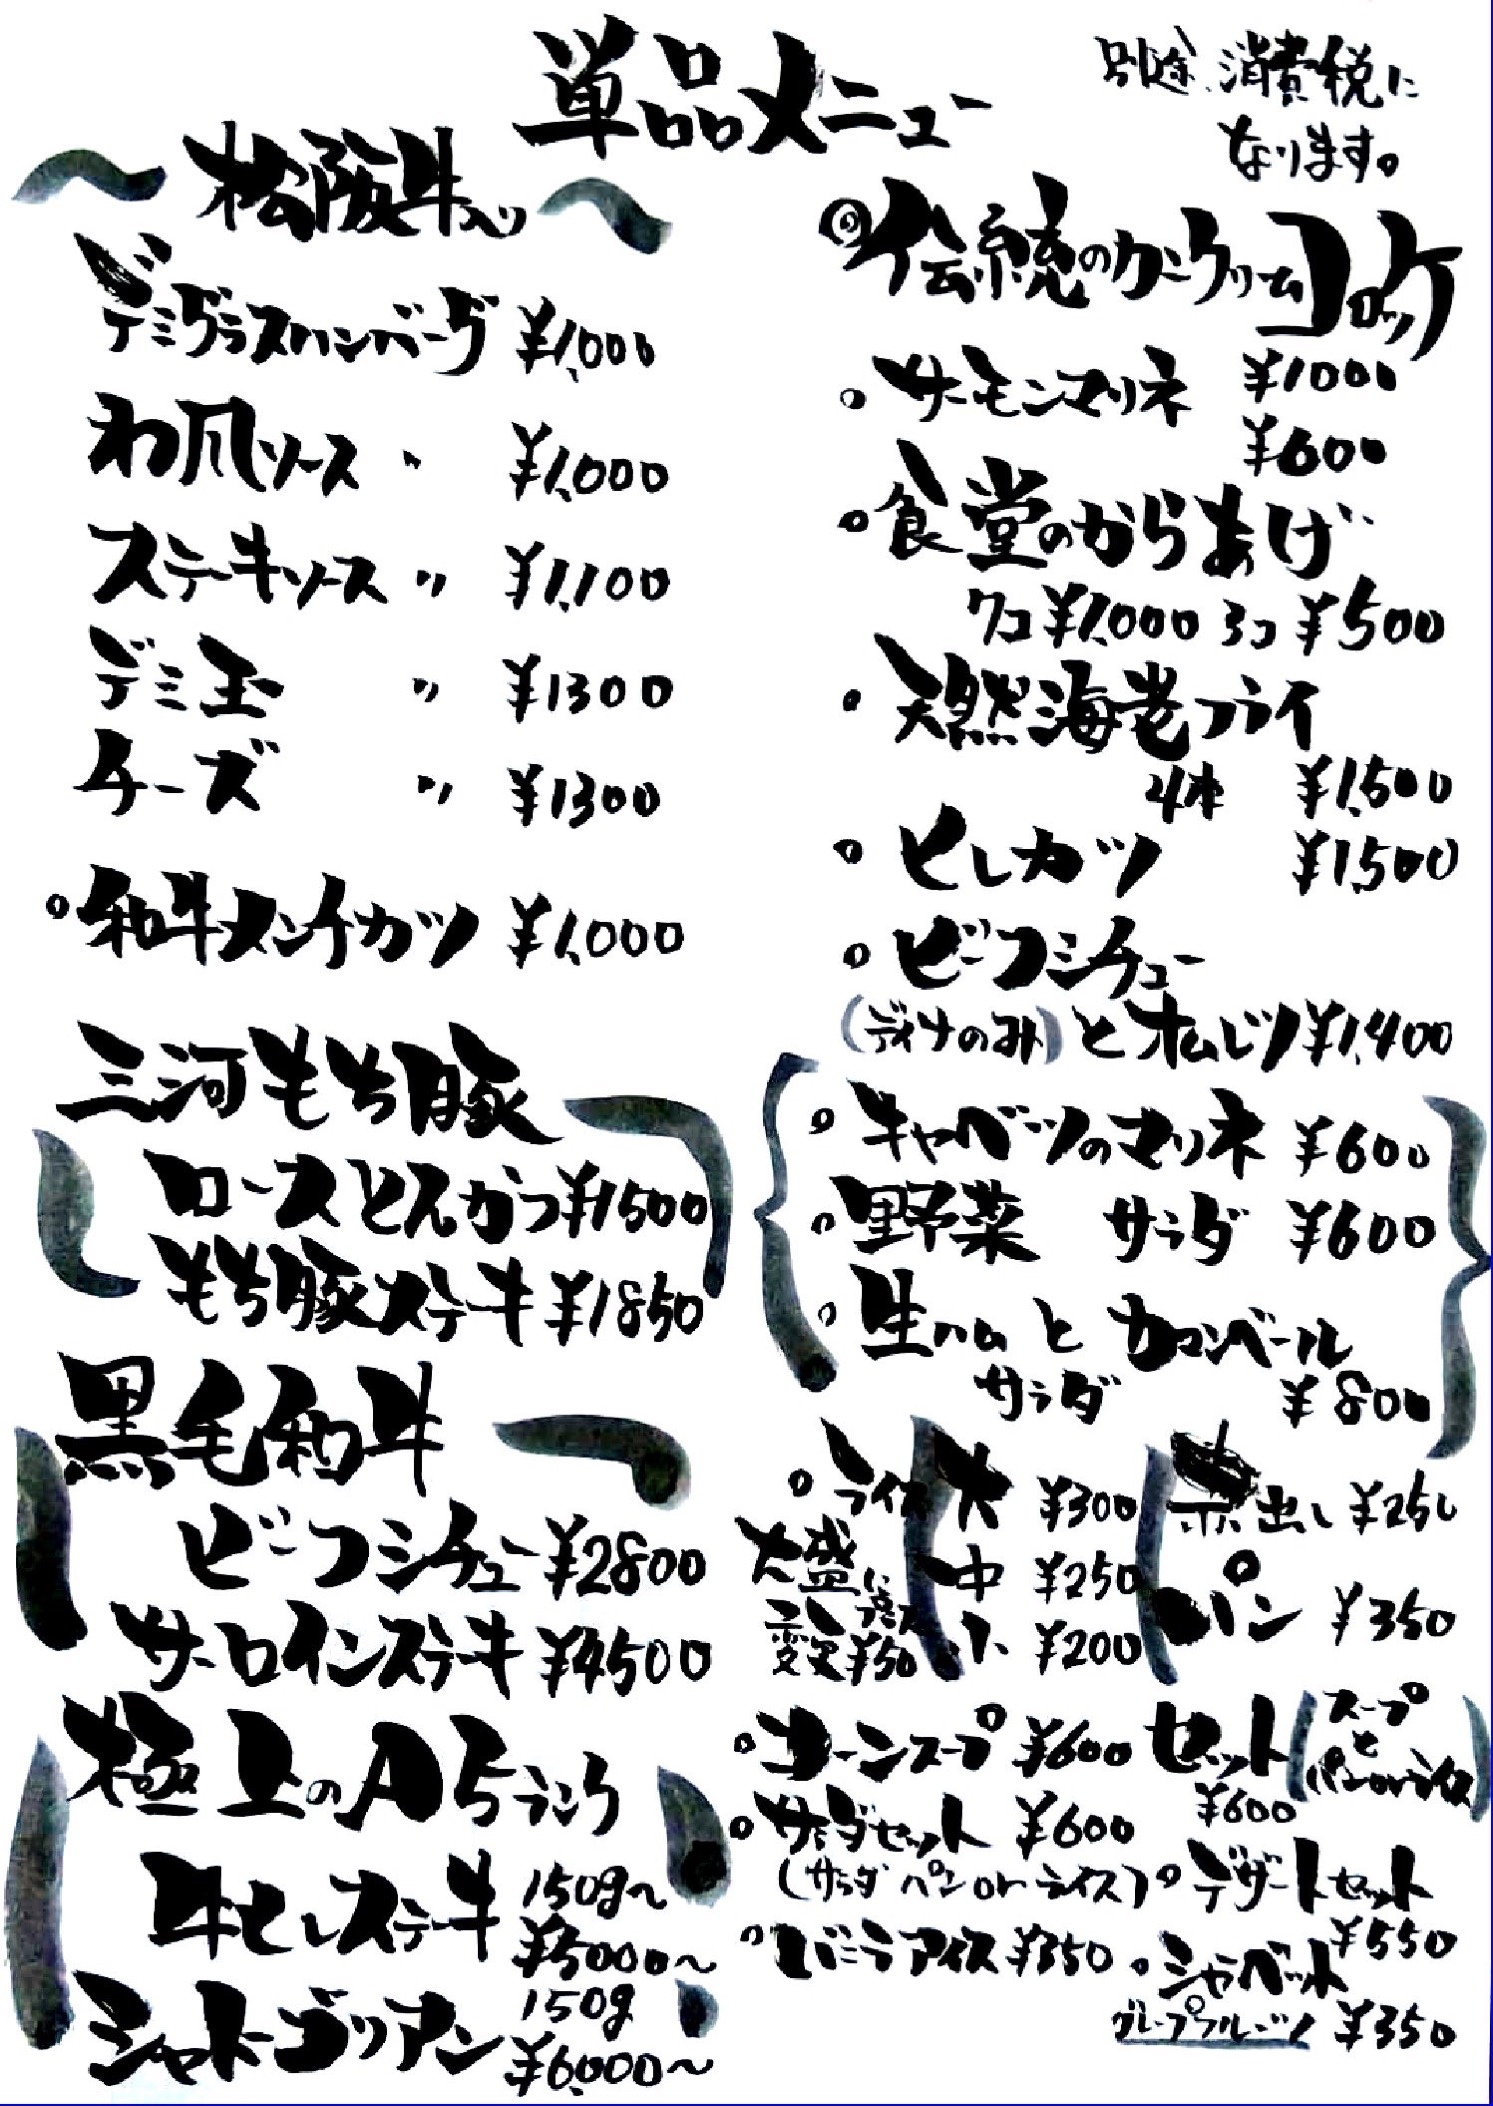 単品メニュー
別途 消費税に
なります。
〜松阪牛入り〜
デミグラスハンバーグ ¥1,000
和風ソース 〃 ¥1,000
ステーキソース 〃 ¥1,100
デミ玉 〃 ¥1300
チーズ 〃 ¥1300
○和牛メンチカツ ¥1,000
三河もち豚
ロースとんかつ ¥1500
もち豚ステーキ ¥1850
黒毛和牛
ビーフシチュー ¥2800
サーロインステーキ ¥4500
極上のA5ランク
牛ヒレステーキ 150g〜
¥5000〜
シャトーブリアン 150g
¥6,000〜
◎伝統のカニクリームコロッケ
¥1000
○サーモンマリネ
¥600
○食堂のからあげ
7コ ¥1,000 3コ ¥500
○天然海老フライ
4本 ¥1,500
○ヒレカツ ¥1,500
○ビーフシチュー
(ディナーのみ)とオムレツ ¥1,400
○キャベツのマリネ ¥600
○野菜 サラダ ¥600
○生ハムとカマンベール
サラダ ¥800
○ライス 大 ¥300
中 ¥250
小 ¥200
大盛に
変更¥50
赤出し ¥250
パン ¥350
○コーンスープ ¥600
セット(スープ
と
パンorライス)
¥600
○サラダセット ¥600
(サラダ パンorライス)
○デザートセット
¥550
○バニラアイス ¥350
○シャーベット
グレープフルーツ ¥350